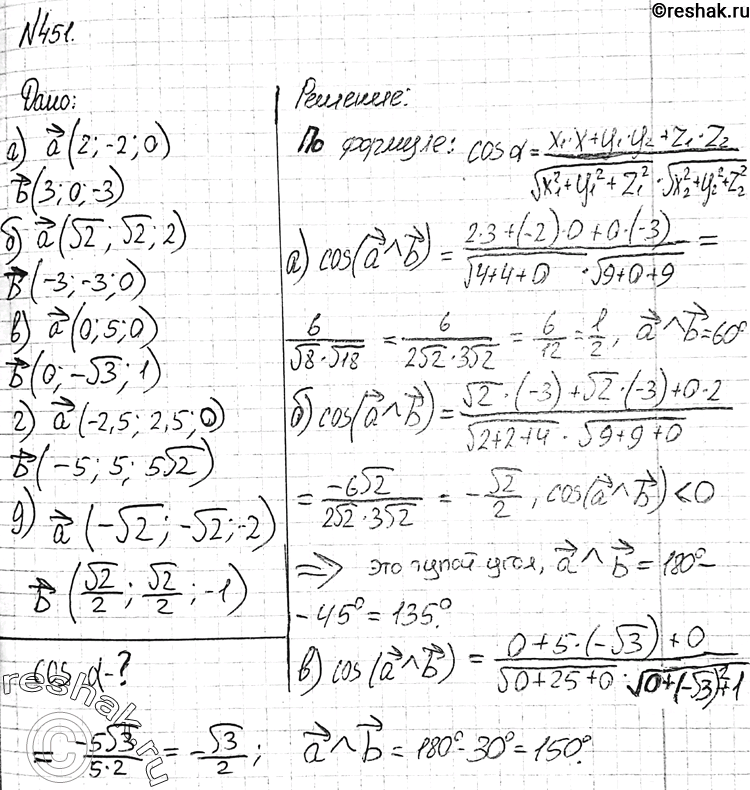 ©reshak.ru
№451.
Дано:
а) a⃗ (2; -2; 0)
b⃗ (3; 0; -3)
б) a⃗ (√2; √2; 2)
b⃗ (-3; -3; 0)
в) a⃗ (0; 5; 0)
b⃗ (0; -√3; 1)
г) a⃗ (-2,5; 2,5; 0)
b⃗ (-5; 5; 5√2)
д) a⃗ (-√2; -√2; -2)
b⃗ (√2/2; √2/2; -1)
cos α-?
Решение:
По формуле: cos α = (x₁·x+y₁·y₂+z₁·z₂)/(√(x₁²+y₁²+z₁²)·√(x₂²+y₂²+z₂²))
а) cos(a⃗^b⃗) = (2·3+(-2)·0+0·(-3))/(√(4+4+0)·√(9+0+9)) =
6/(√8·√18) = 6/(2√2·3√2) = 6/12 = 1/2, a⃗^b⃗=60°
б) cos(a⃗^b⃗) = (√2·(-3)+√2·(-3)+0·2)/(√(2+2+4)·√(9+9+0))
= -6√2/(2√2·3√2) = -√2/2, cos(a⃗^b⃗)<0
⇒ это тупой угол, a⃗^b⃗ = 180°-
-45°=135°.
в) cos(a⃗^b⃗) = (0+5·(-√3)+0)/(√(0+25+0)·√(0+(-√3)²+1))
= -5√3/(5·2) = -√3/2; a⃗^b⃗ = 180°-30°=150°.